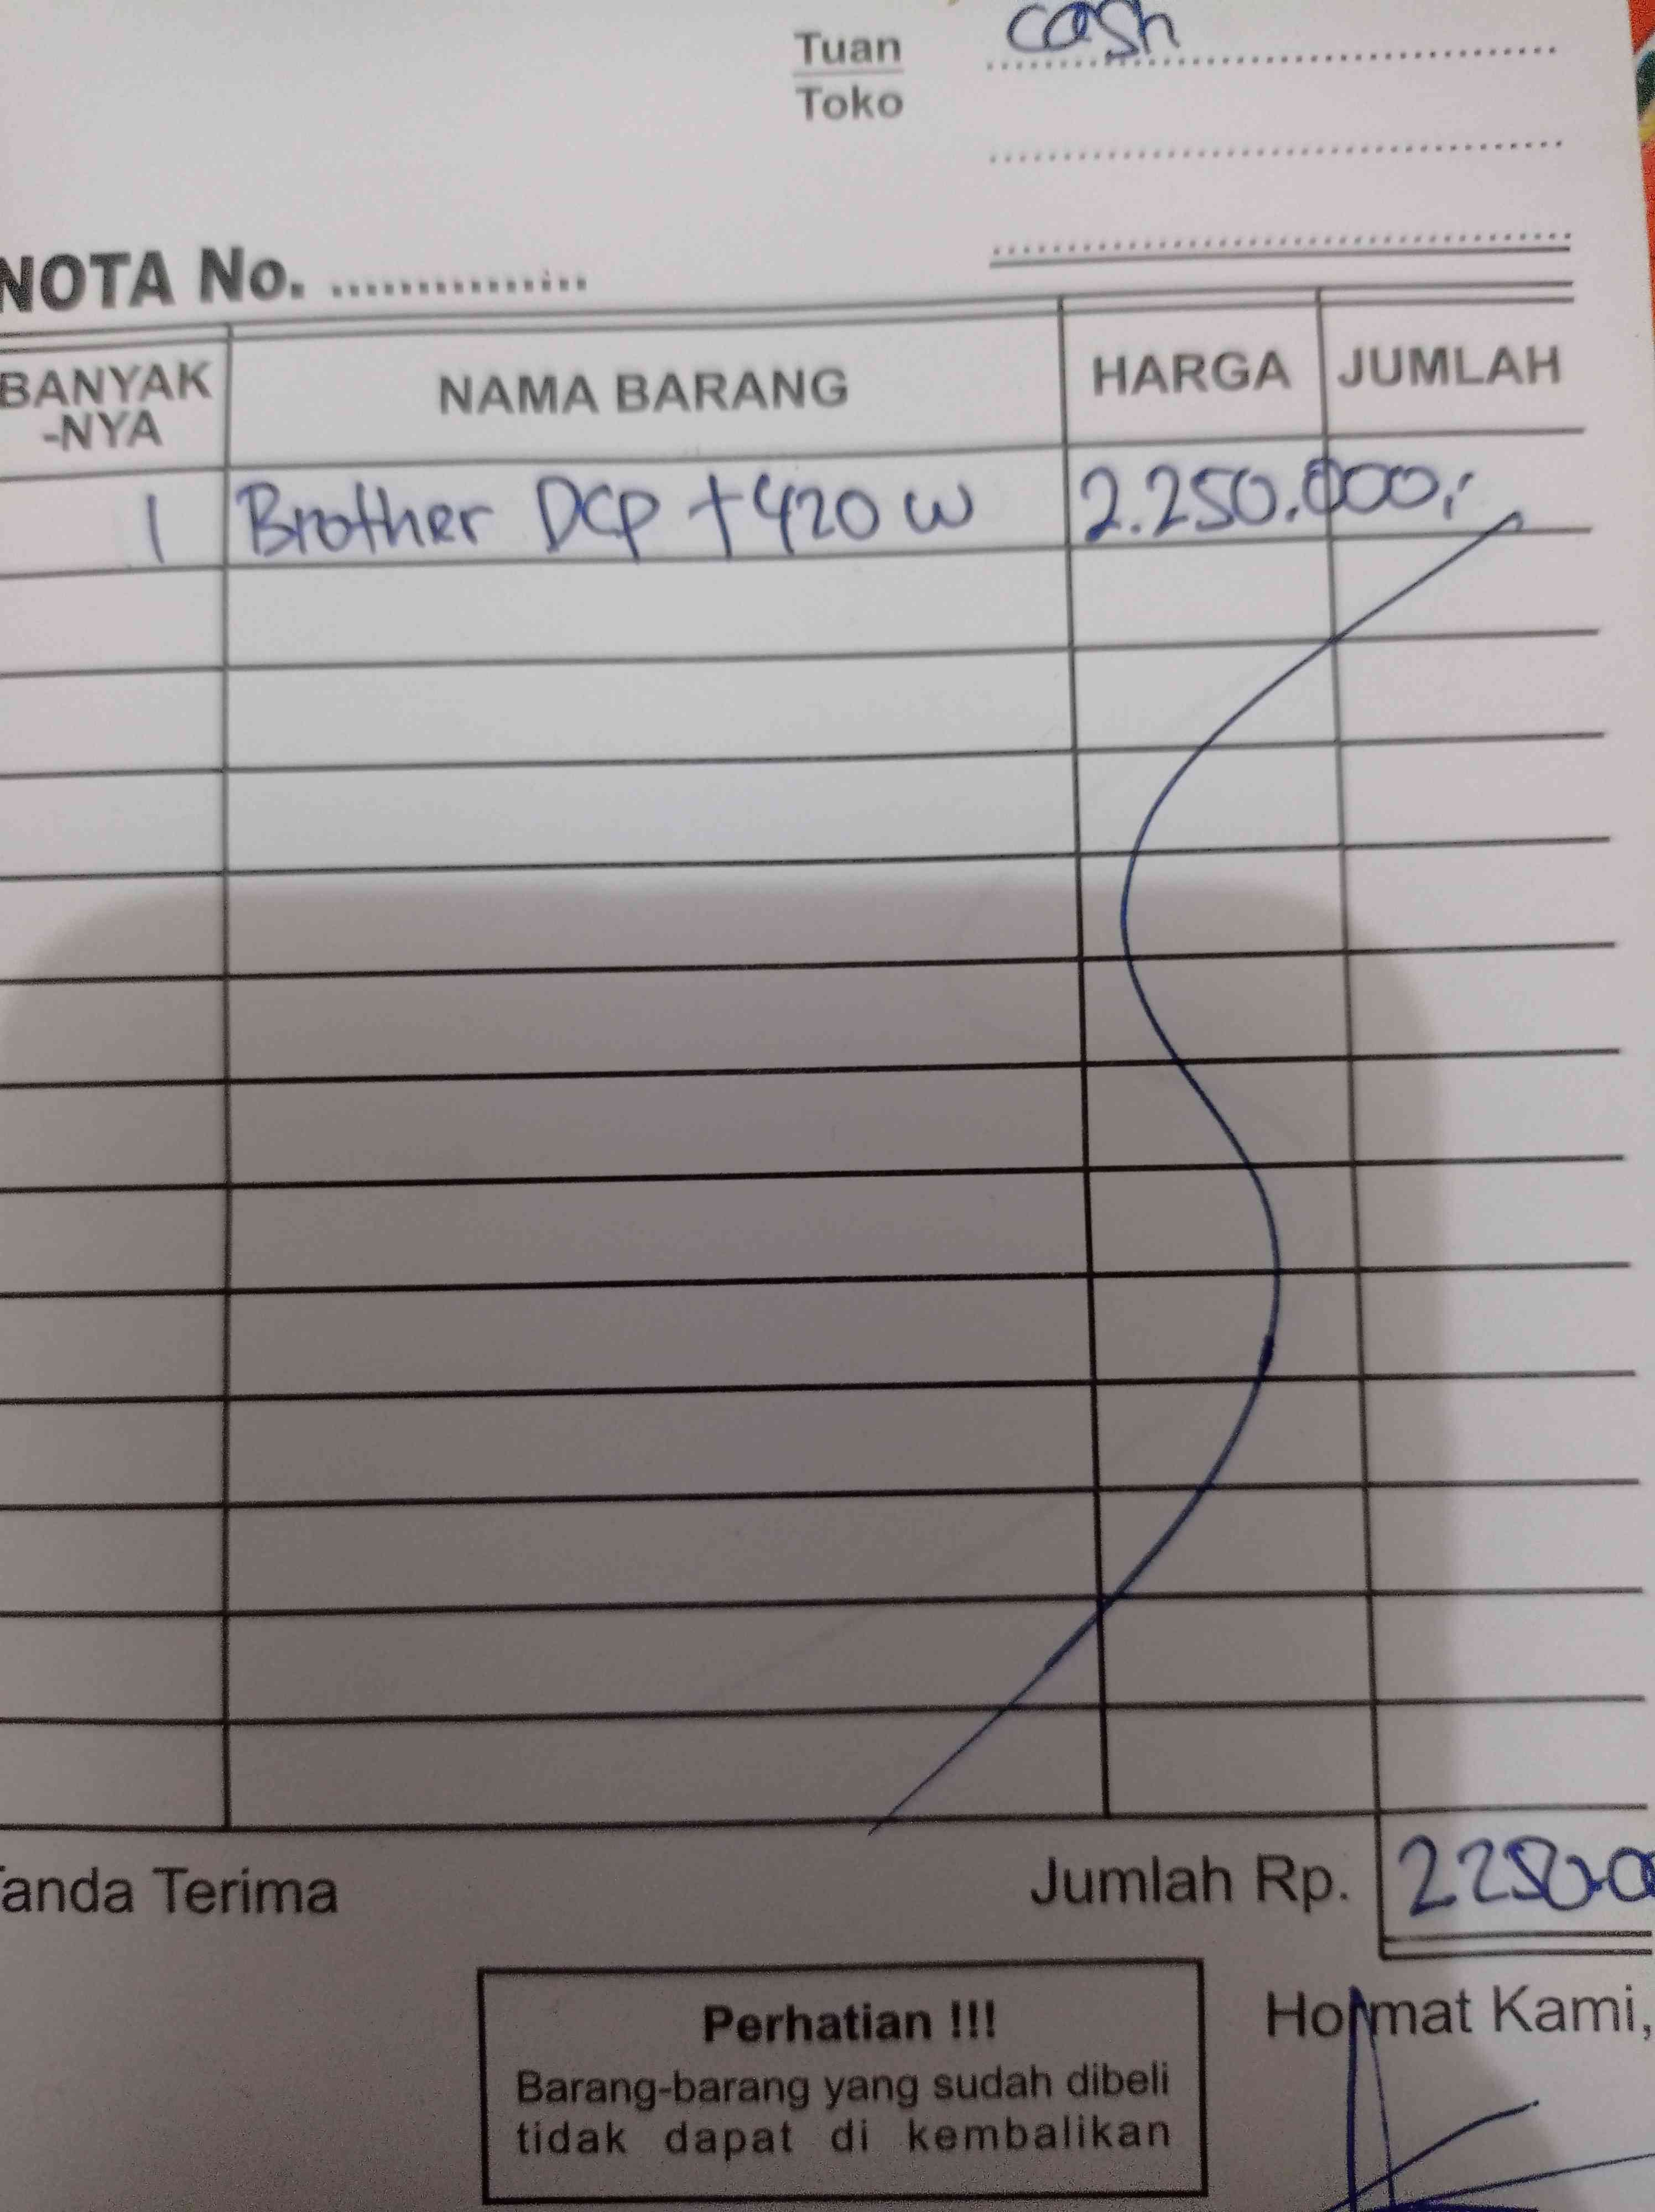 Tuan cash
Toko
NOTA No. ...............
BANYAK
-NYA
NAMA BARANG
HARGA
JUMLAH
1 Brother DCP T420 W 2.250.000,-
Tanda Terima
Jumlah Rp. 2250.0
Perhatian !!!
Hormat Kami,
Barang-barang yang sudah dibeli
tidak dapat di kembalikan